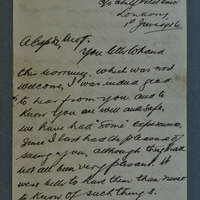 London
1st June 1916
A Capt.
Your letter to hand
this morning, which was most
welcome, I was indeed glad
to hear from you, and to
know you are well and safe.
We have had "some" experiences
since I last had the pleasure of
seeing you, although they have
not all been very pleasant. it
were better to have them than never
to know of such things.